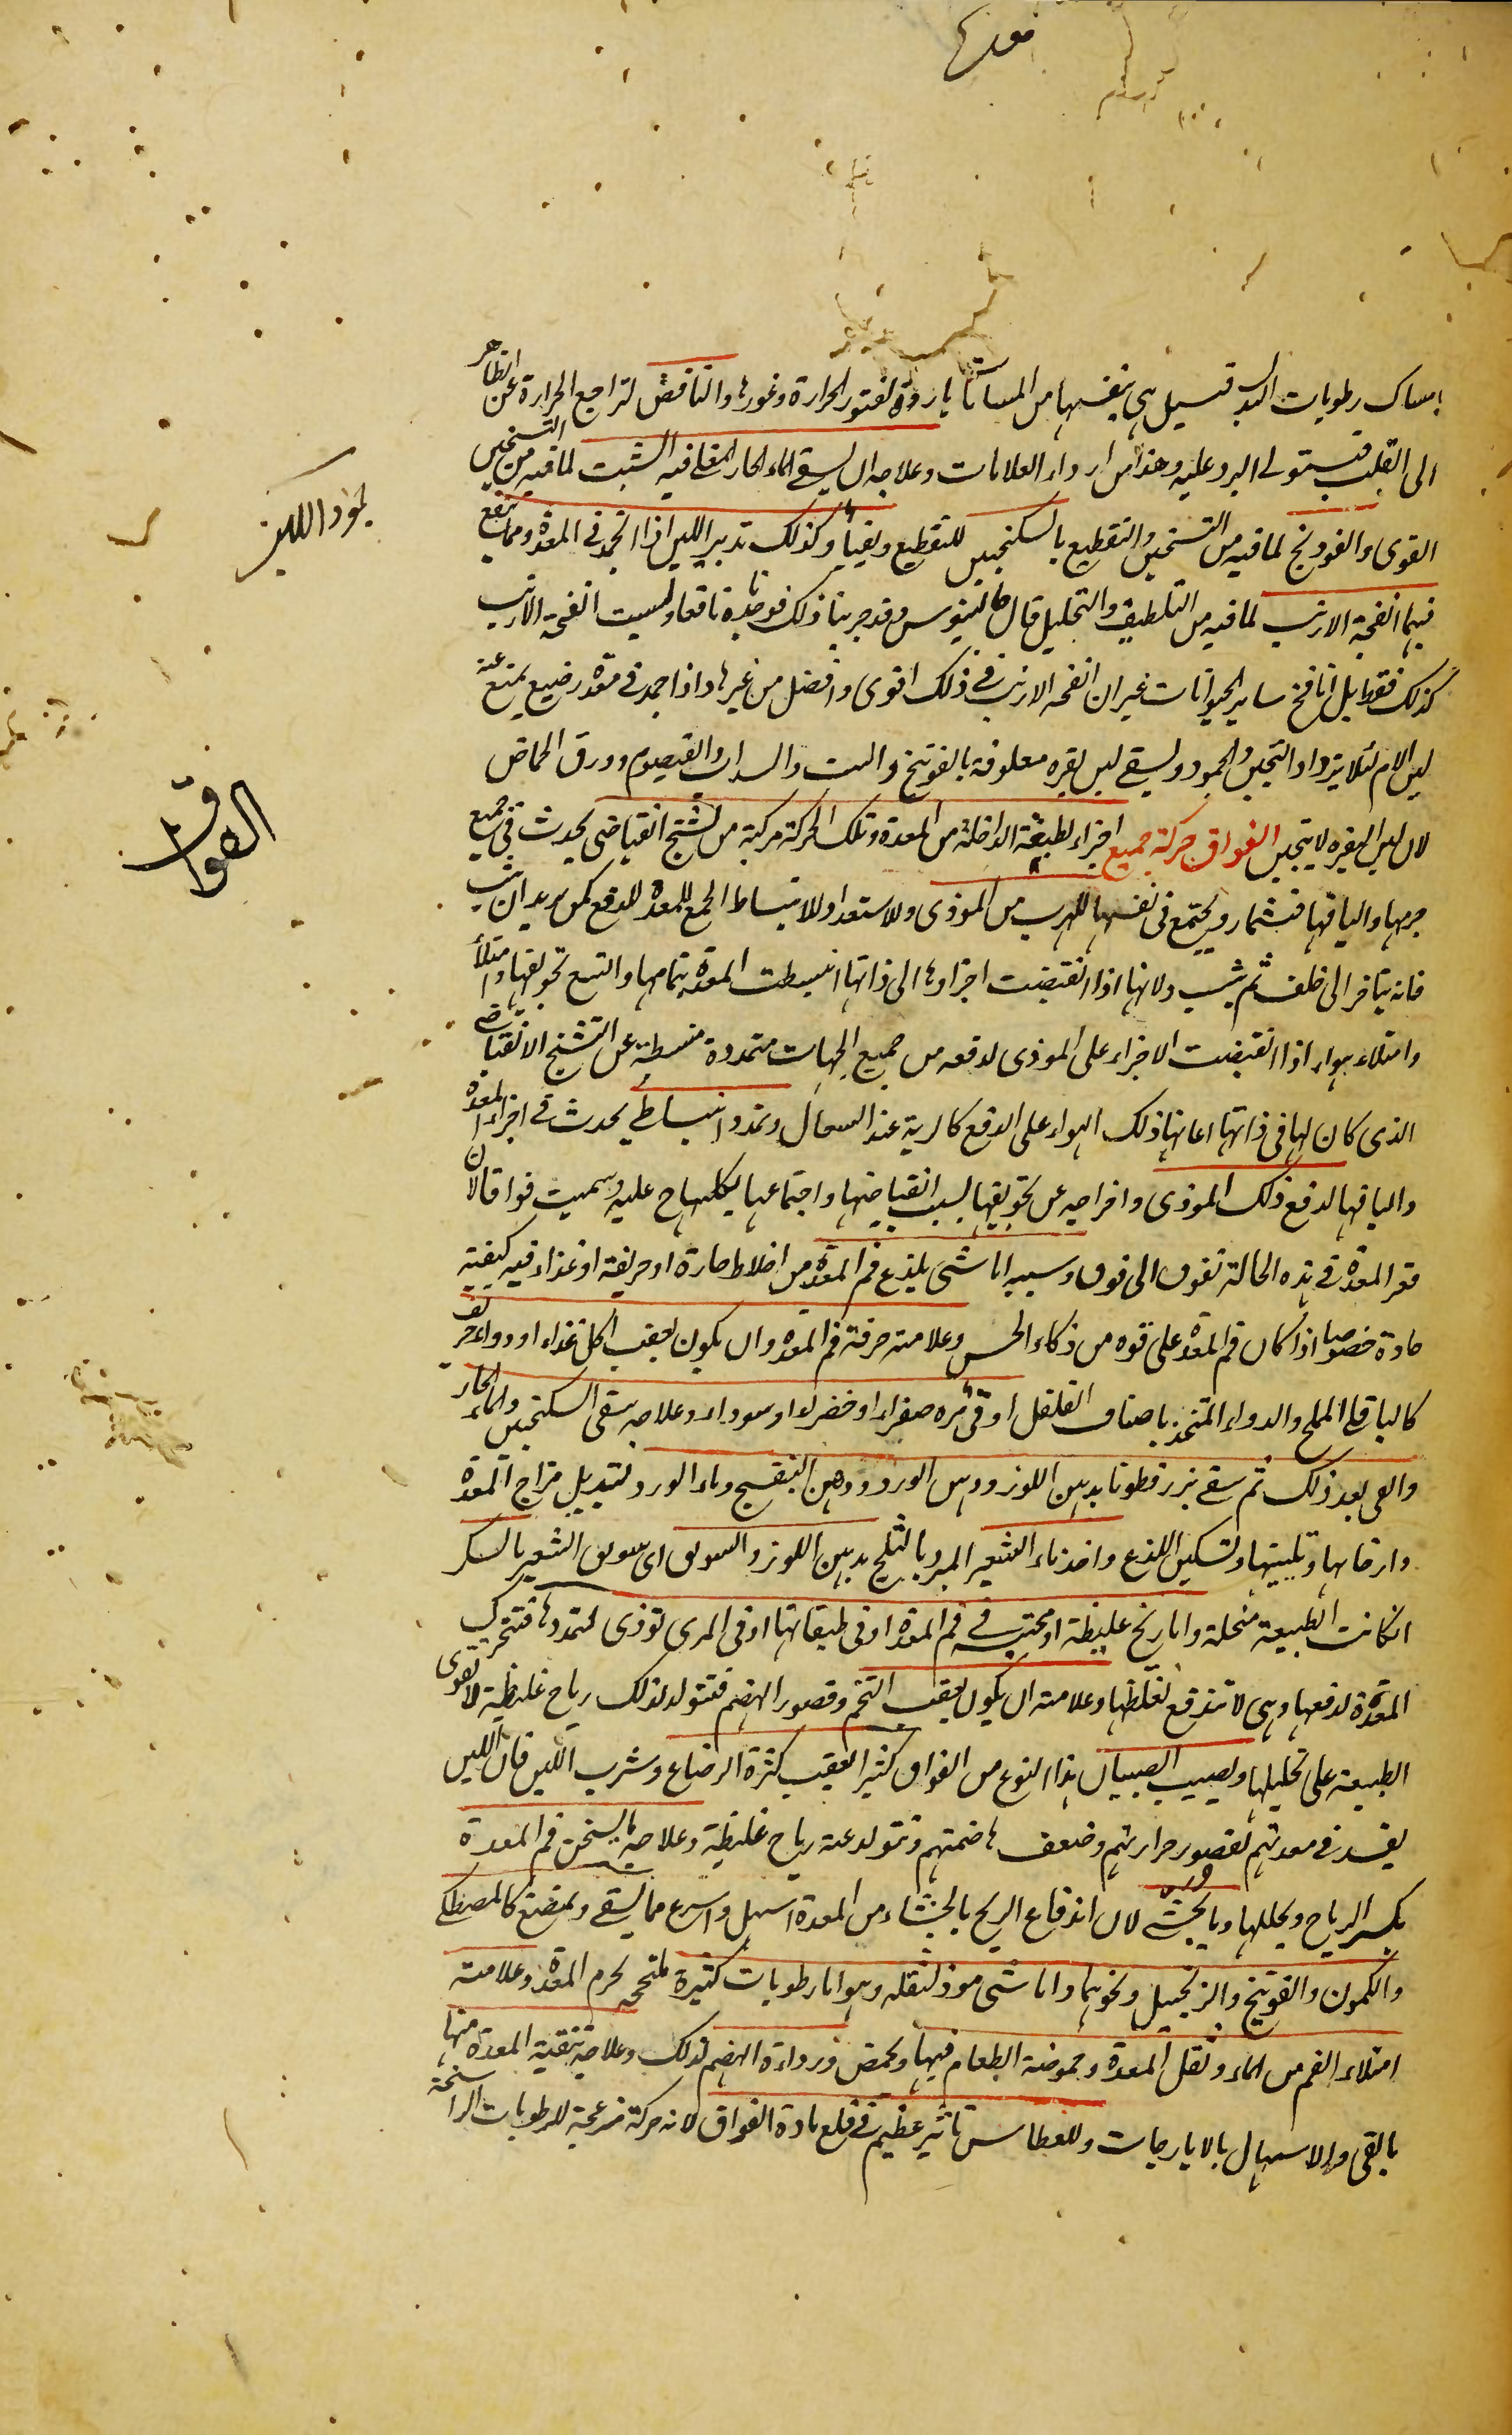 امساك رطوبات البدن فتسيل هى بنفسها من المسامات باردة لفتور الحرارة وغورها والنافض لتراجع الحرارة عن الظاهر
الى القلب فيستولى البرد عليه وهذا من اردأ العلامات وعلاجه ان يسقى الماء الحار المغلى فيه الشبت لما فيه من التسخين
القوى والفودنج لما فيه من التسخين والتقطيع بالسكنجبين للتقطيع ويقيأ وكذلك تدبير اللبن اذا انجمد فى المعدة ومما ينفع
فيهما انفحة الارنب لما فيه من التلطيف والتحليل قال جالينوس وقد جربنا ذلك فوجدناه نافعا وليست انفحة الارنب
كذلك فقط بل انافح ساير الحيوانات غير ان انفحة الارنب فى ذلك اقوى وافضل من غيرها واذا جمد فى معدة رضيع يمنع عنه
لبن الام لئلا يزداد التجبن والجمود ويسقى لبن بقره معلوفة بالفوتنج والشبت والسداب والقيصوم وورق الحماض
لان لبن البقره لا يتجبن الفواق حركة جميع اجزاء لطبيقة الداخلة من المعدة وتلك الحركة مركبة من تشنج انقباضى يحدث فى جميع
جرمها والیافها فتشمار ويجتمع فى نفسها للهرب من الموذى وللاستعداد للانبساط الجمع للمعدة للدفع كمن يريد ان يثب
فانه يتاخر الى خلف ثم يثب ولانها اذا انقبضت اجزاوها الى ذاتها انبسطت المعدة بتمامها واتسع تجويفها وامتلأ
وامتلاء هواء اذا انقبضت الاجزاء على الموذى لدفعه من جميع الجهات متمددة منبسطة عن التشنج الانقباضى
الذى كان لها فى ذاتها اعانها ذلك الهواء على الدفع كالرية عند السعال وتمدد انبساطى يحدث فى اجزاء المعدة
والیافها لدفع ذلك الموذى واخراجه عن تجويفها بسبب انقباضها واجتماعها بكليتها عليه وسميت فواقا لان
قعر المعدة فى هذه الحالة تفوق الى فوق وسببه اما شئ يلذع فم المعدة من اخلاط حارة او حريفة او غذاء فيه كيفية
حادة خصوصا اذا كان فم المعدة على قوه من ذكاء الحس وعلامته حرقة فم المعدة وان يكون بعقب اكل غذاء او دواء حريف
كالباقلى المملح والدواء المتخذ باصناف الفلفل او قئ مره صفراء او خضراء او سوداء وعلاجه سقى السكنجبين والماء الحار
والقى بعد ذلك ثم سقى بزرقطونا بدهن اللوز ودهن الورد ودهن البنفسج وماء الورد لتبديل مزاج المعدة
وارخائها وتليينها وتسكين اللذع واخذ ماء الشعير المبرد بالثلج بدهن اللوز والسويق اى سويق الشعير بالسكر
انكانت الطبيعة منحلة واما ريح غليظة او محتبسه فى فم المعدة او فى طبقاتها او فى المرى توذى لتمددها فتتحرك
المعدة لدفعها وهى لا تندفع لغلظها وعلامته ان يكون بعقب التخم وقصور الهضم فتتولد لذلك رياح غليظة لا تقوى
الطبيعة على تحليلها ويصيب الصبيان هذا النوع من الفواق كثيرا لعقيب كثرة الرضاع وشرب اللبن فان اللبن
يفسد فى معدتهم لقصور حرارتهم وضعف هاضمتهم وتتولد عنه رياح غليظة وعلاجه ما يسخن فم المعدة
بكسر الرياح ويحللها وبما يجشى لان اندفاع الريح بالجشاء من المعدة اسهل واسرع مما يسقى ويمضغ كالمصطكى
والكمون والفوتنج والزنجبيل ونحوهما واما شئ موذ لثقله وهو اما رطوبات كثيرة ملتحمه لجرم المعدة وعلامته
امتلاء الفم من الماء وثقل المعدة وحموضة الطعام فيها ويحمض ورداءة الهضم لذلك وعلاجه تنقية المعدة منها
بالقى والاسهال بالايارجات وللعطاس تاثير عظيم فى قلع مادة الفواق لانه حركة مزعجة للرطوبات الراسخة
جمود اللبن
الفواق